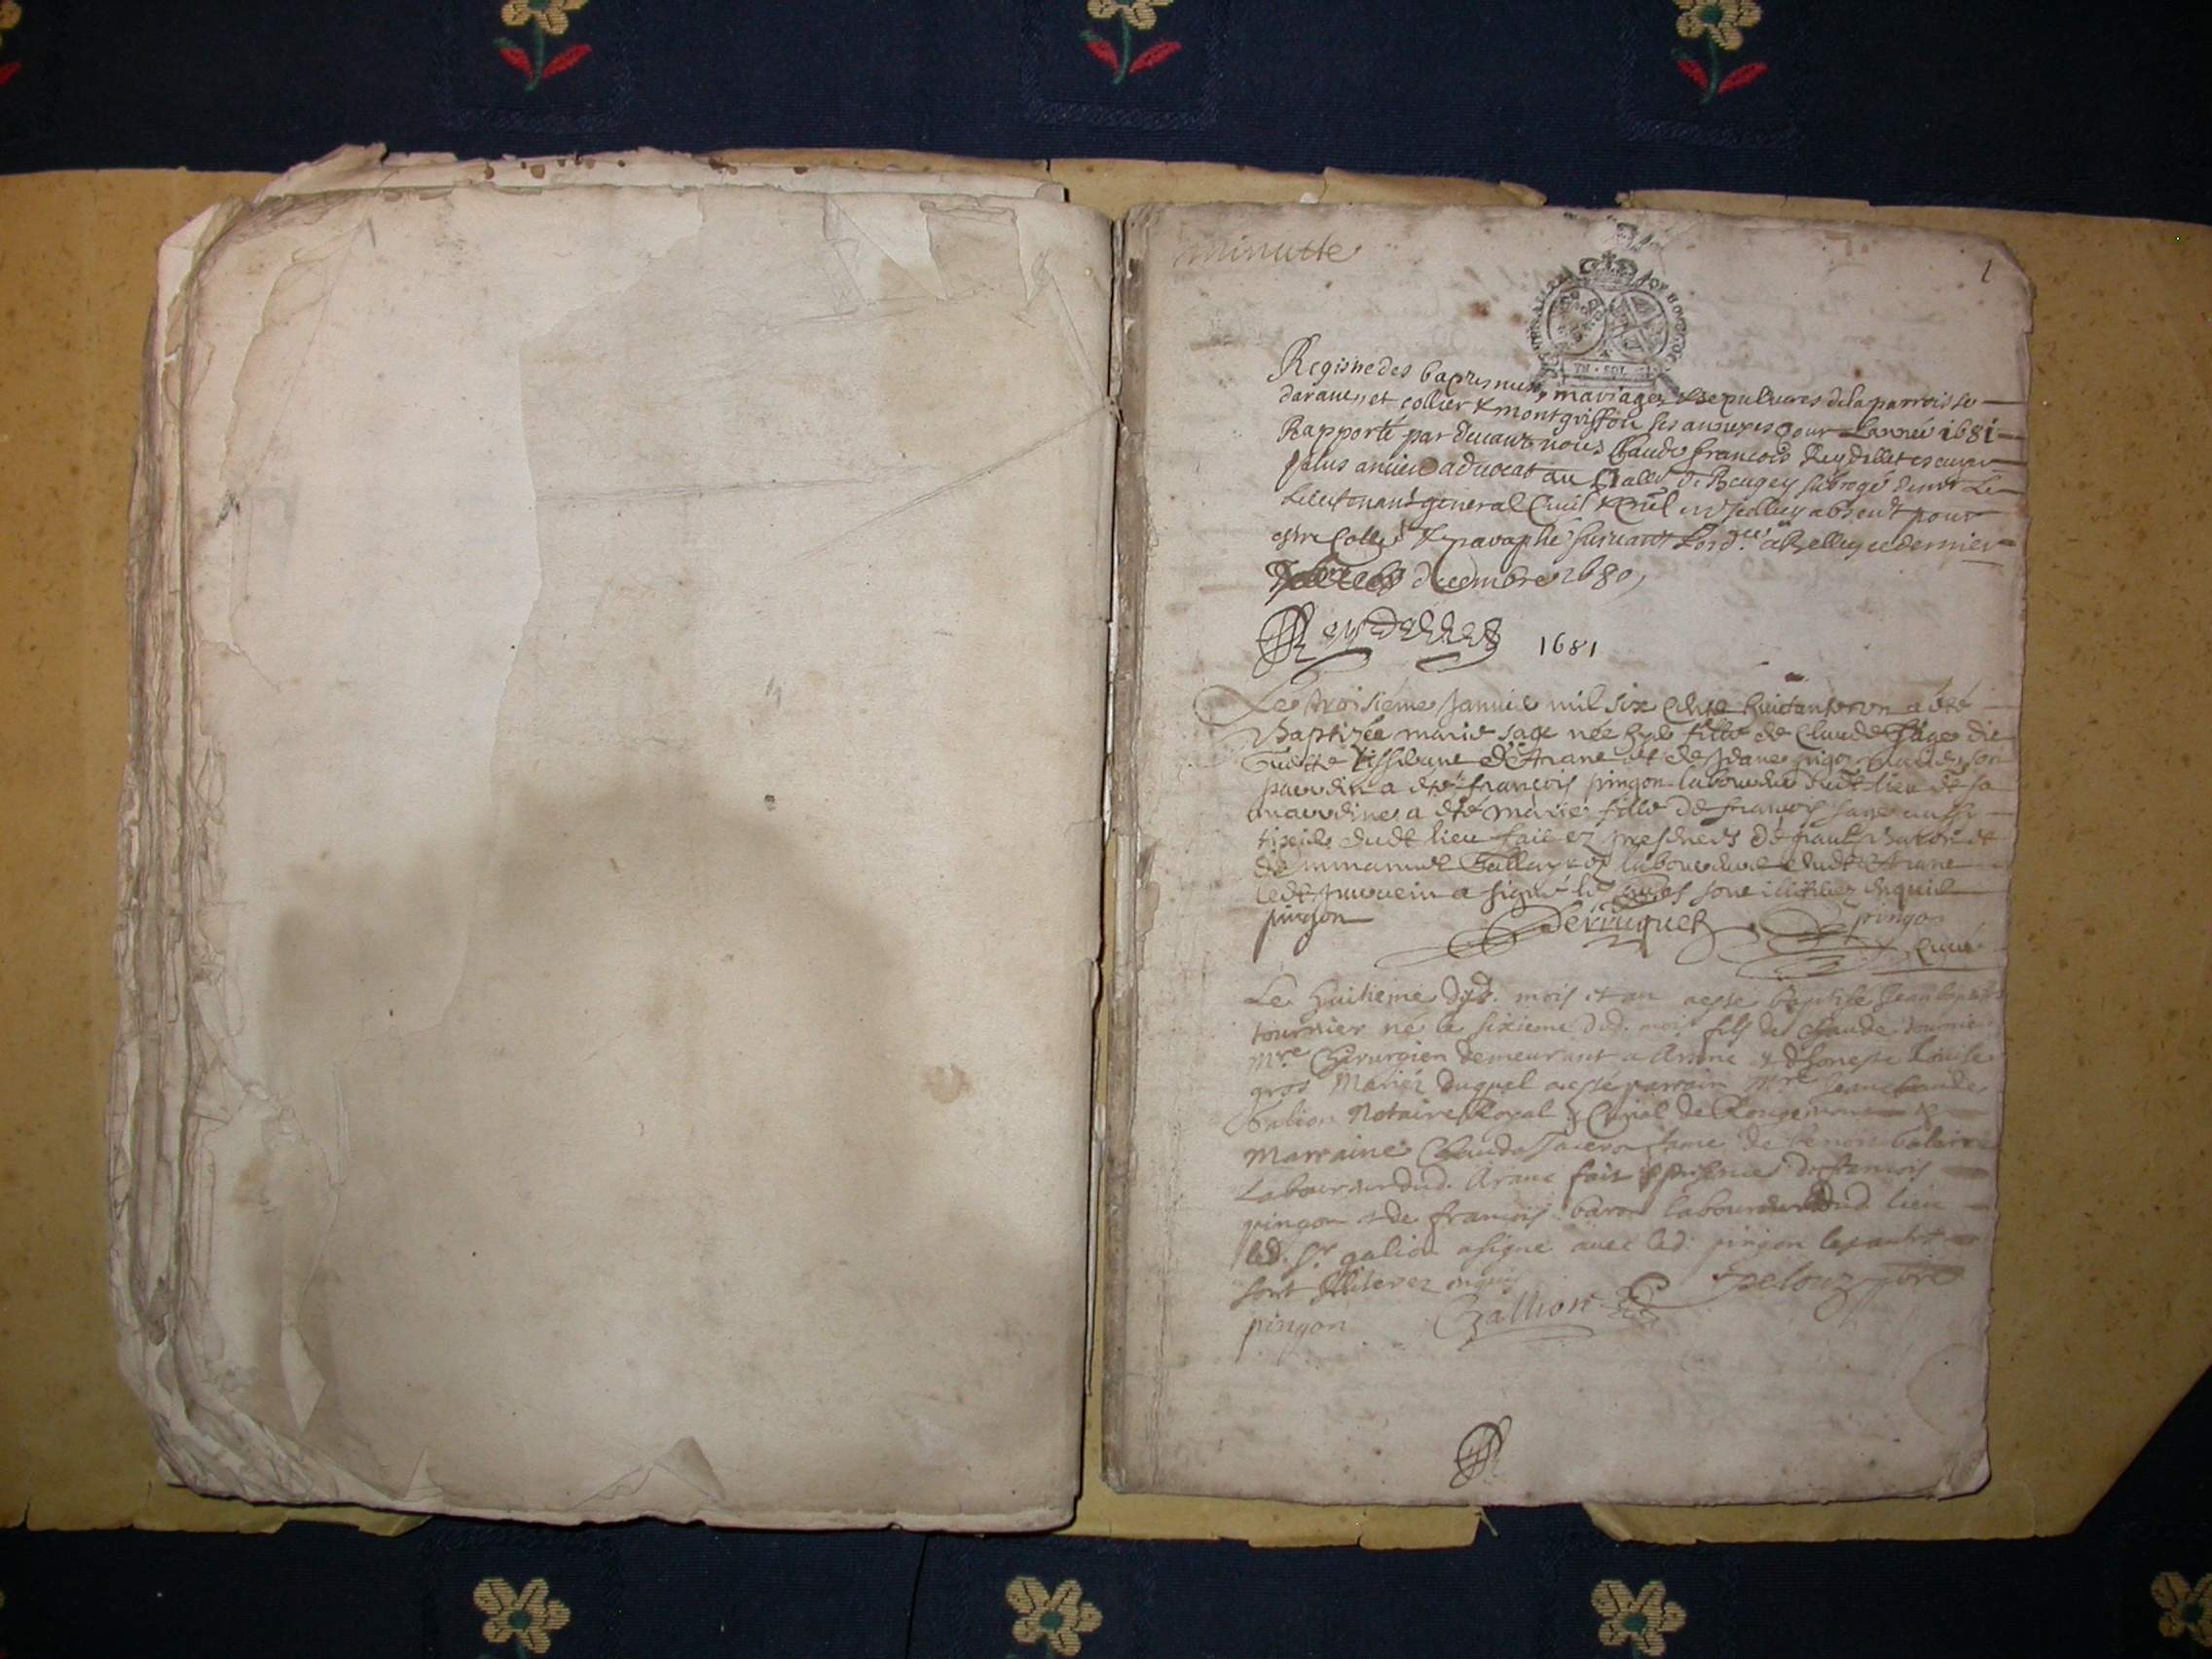 minutte
1
UN SOL
Registre des baptesmes, mariages & sepultures de la parroisse
darane, et collier & montgriffon ses annexes pour Lannée 1681
Rapporté par devant nous Claude françois Reydellet escuyer
plus ancien advocat au Balle de Beugey subrogé de mr Le
Lieutenant general Civil & Crīel absent pour
estre Cotté & paraphé suivant Lord.ce a Belley ce dernier
decembre 1680,
Reydellet
1681
Le troisieme Janvie mil six cents huictante un a été
Baptizée marie sage née hyer fille de Claude Sage dit
d'Arane et de Jane pingon mariés son
parrdin a été françois pingon laboureur dudt lieu et sa
marrdine a été marie fille de françois sage aussi
dudt lieu fait ez presences de paul baron et
de emmanuel laboureurs dudt Arane
ledt parrein a signé les autres sont illiterez enquis
pingon
pingon
Curé
Le huitieme dud. mois et an a esté baptise Jean baptiste
tournier né le sixieme dud. mois fils de Claude tournier
Mre Chirurgien demeurant a Arane & dhoneste Louise
gros Mariez duquel a esté parrain Mre Jean Claude
Galion Notaire Royal & Curial de Rougemont &
Marraine Clauda fame de benoit
Laboureur dud. Arane fait presence de françois
pingon & de françois baron laboureurs dud. lieu
led. Sr. galion a signé avec led. pingon les autres
sont illiterez enquis
pingon
Gallion
pbre